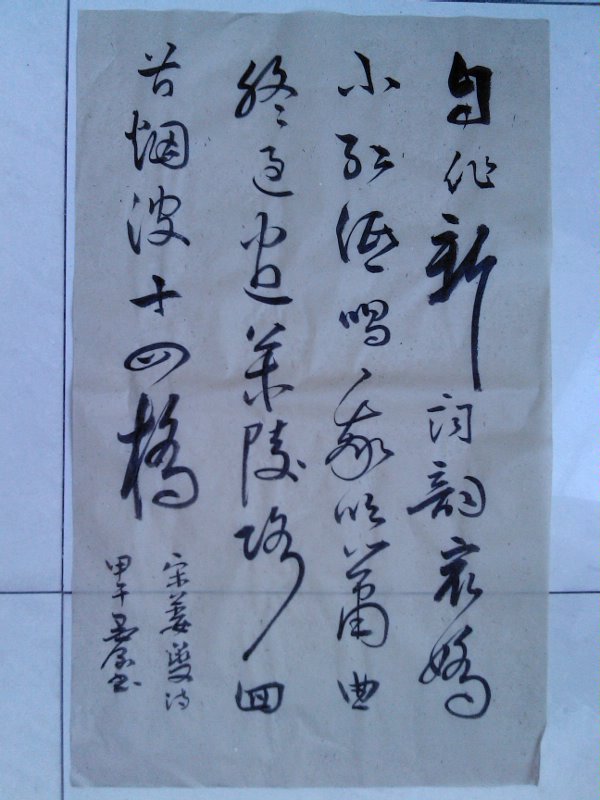 自作新词韵最娇
小红低唱我吹箫曲
终过尽松陵路回
首烟波十四桥
宋姜夔诗
甲午书